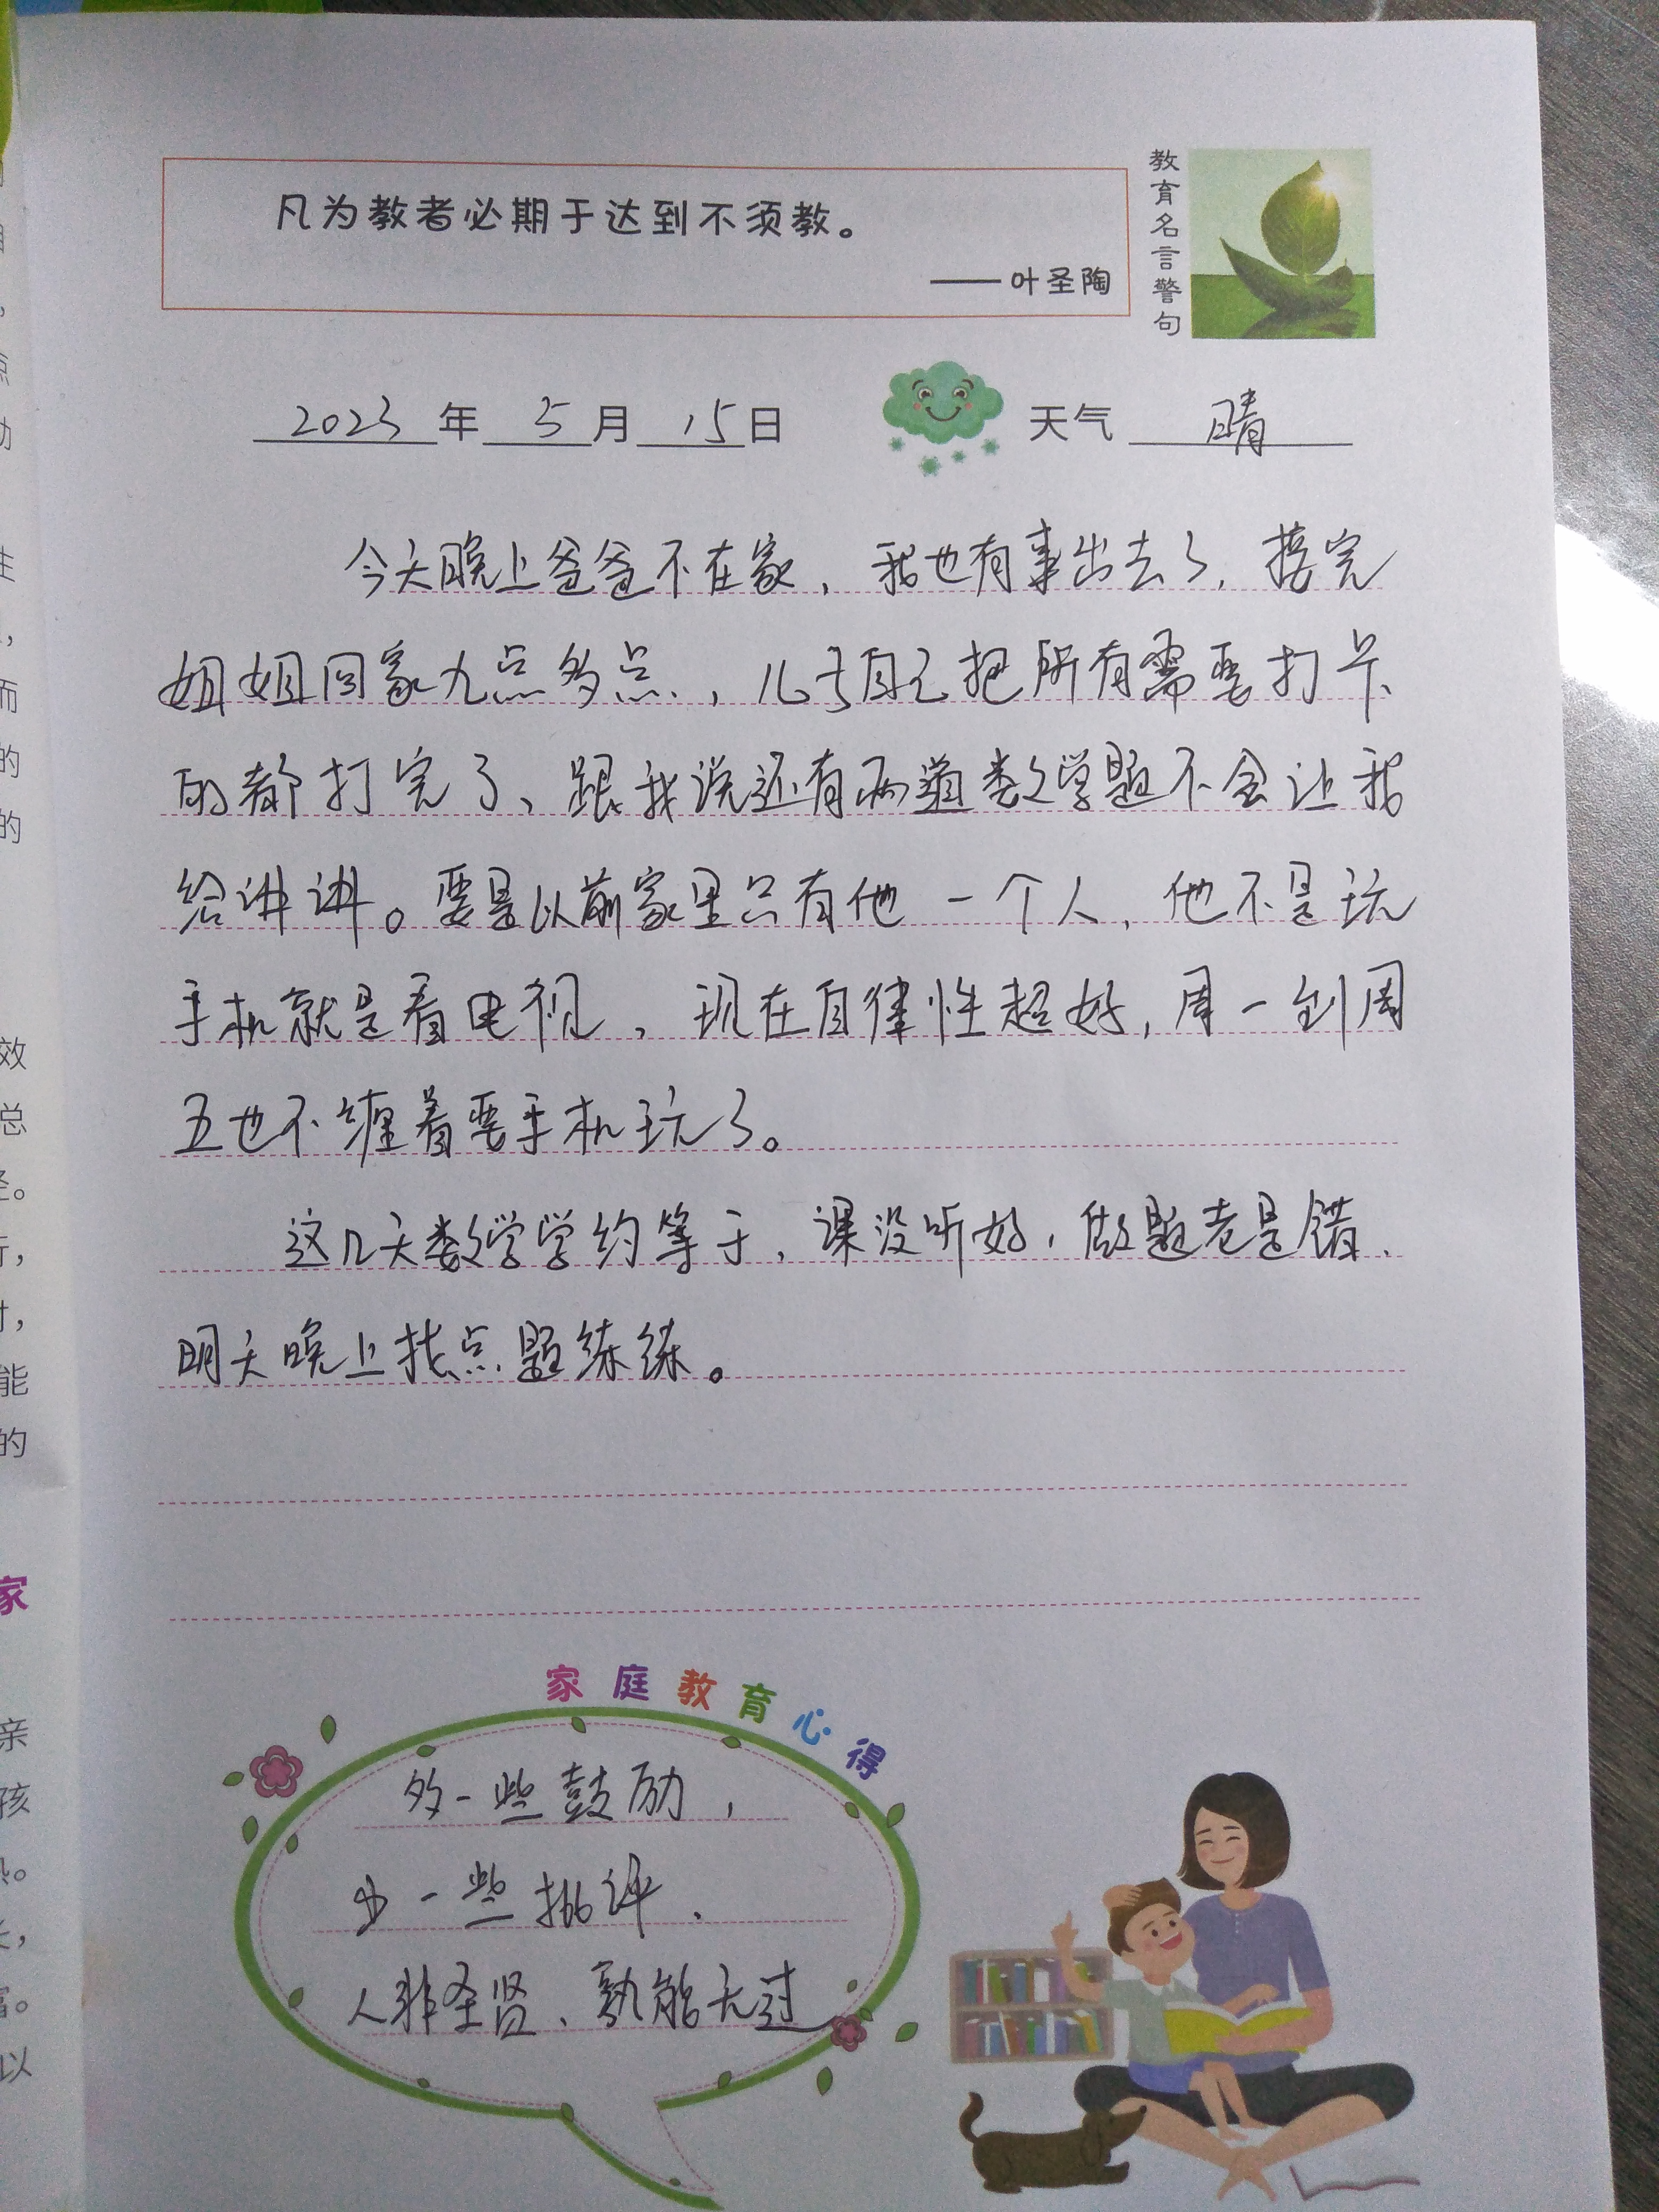 凡为教者必期于达到不须教。
——叶圣陶
教育名言警句
2023年5月15日
天气 晴
今天晚上爸爸不在家，我也有事出去了，接完
姐姐回家九点多点，儿子自己把所有需要打卡
的都打完了、跟我说还有两道数学题不会让我
给讲讲。要是以前家里只有他一个人，他不是玩
手机就是看电视，现在自律性超好，周一到周
五也不缠着要手机玩了。
这几天数学学约等于，课没听好，做题老是错、
明天晚上找点题练练。
家庭教育心得
多一些鼓励，
少一些批评、
人非圣贤、孰能无过